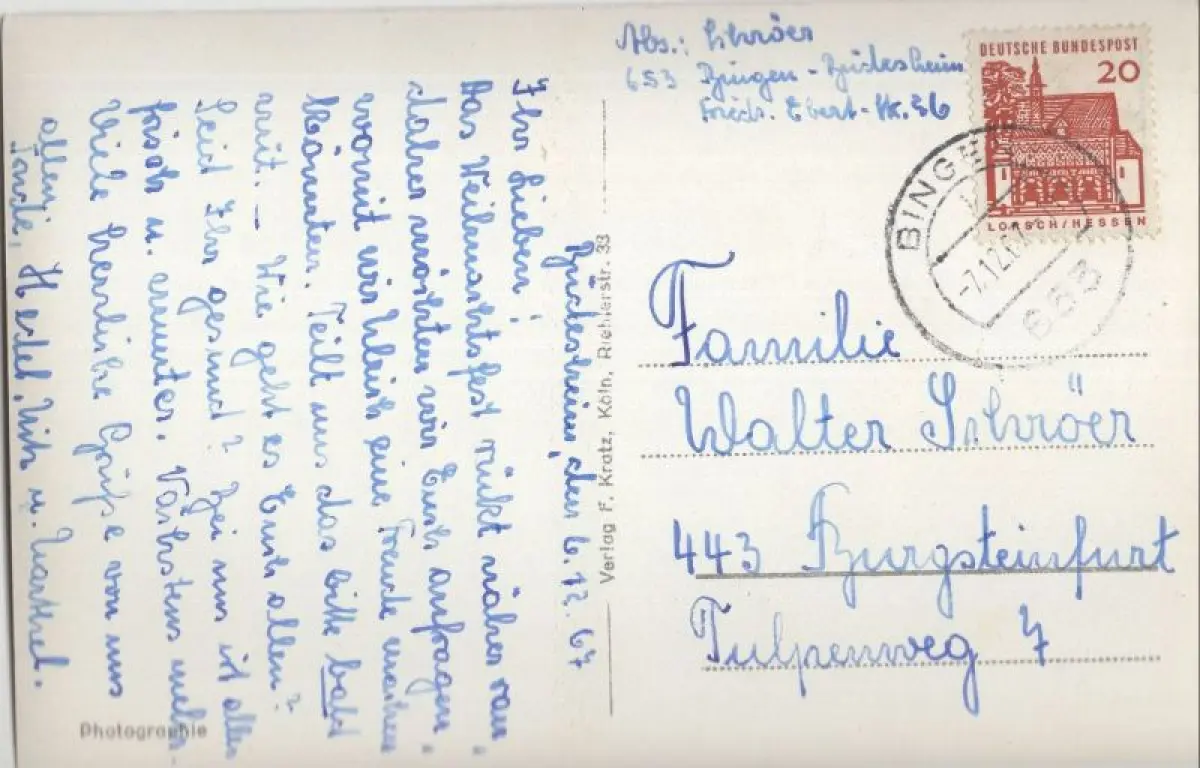 Abs.: Schröer
653 Bingen - Büdesheim
Friedr. Ebert-Str. 36
DEUTSCHE BUNDESPOST
20
LORSCH/HESSEN
BINGEN
-7.12.67
653
Büdesheim, den 6.12.67
Ihr Lieben!
Das Weihnachtsfest rückt näher ran,
daher möchten wir Euch anfragen,
womit wir Euch eine Freude machen
könnten. Teilt uns das bitte bald
mit. - Wie geht es Euch allen?
Seid Ihr gesund? Bei uns ist alles
frisch u. munter. Nächstens mehr.
Viele herzliche Grüße von uns
allen,
Tante, Hedel, u.
Photographie
Verlag F. Kratz, Köln, Riehlerstr. 33
Familie
Walter Schröer
443 Burgsteinfurt
Tulpenweg 7